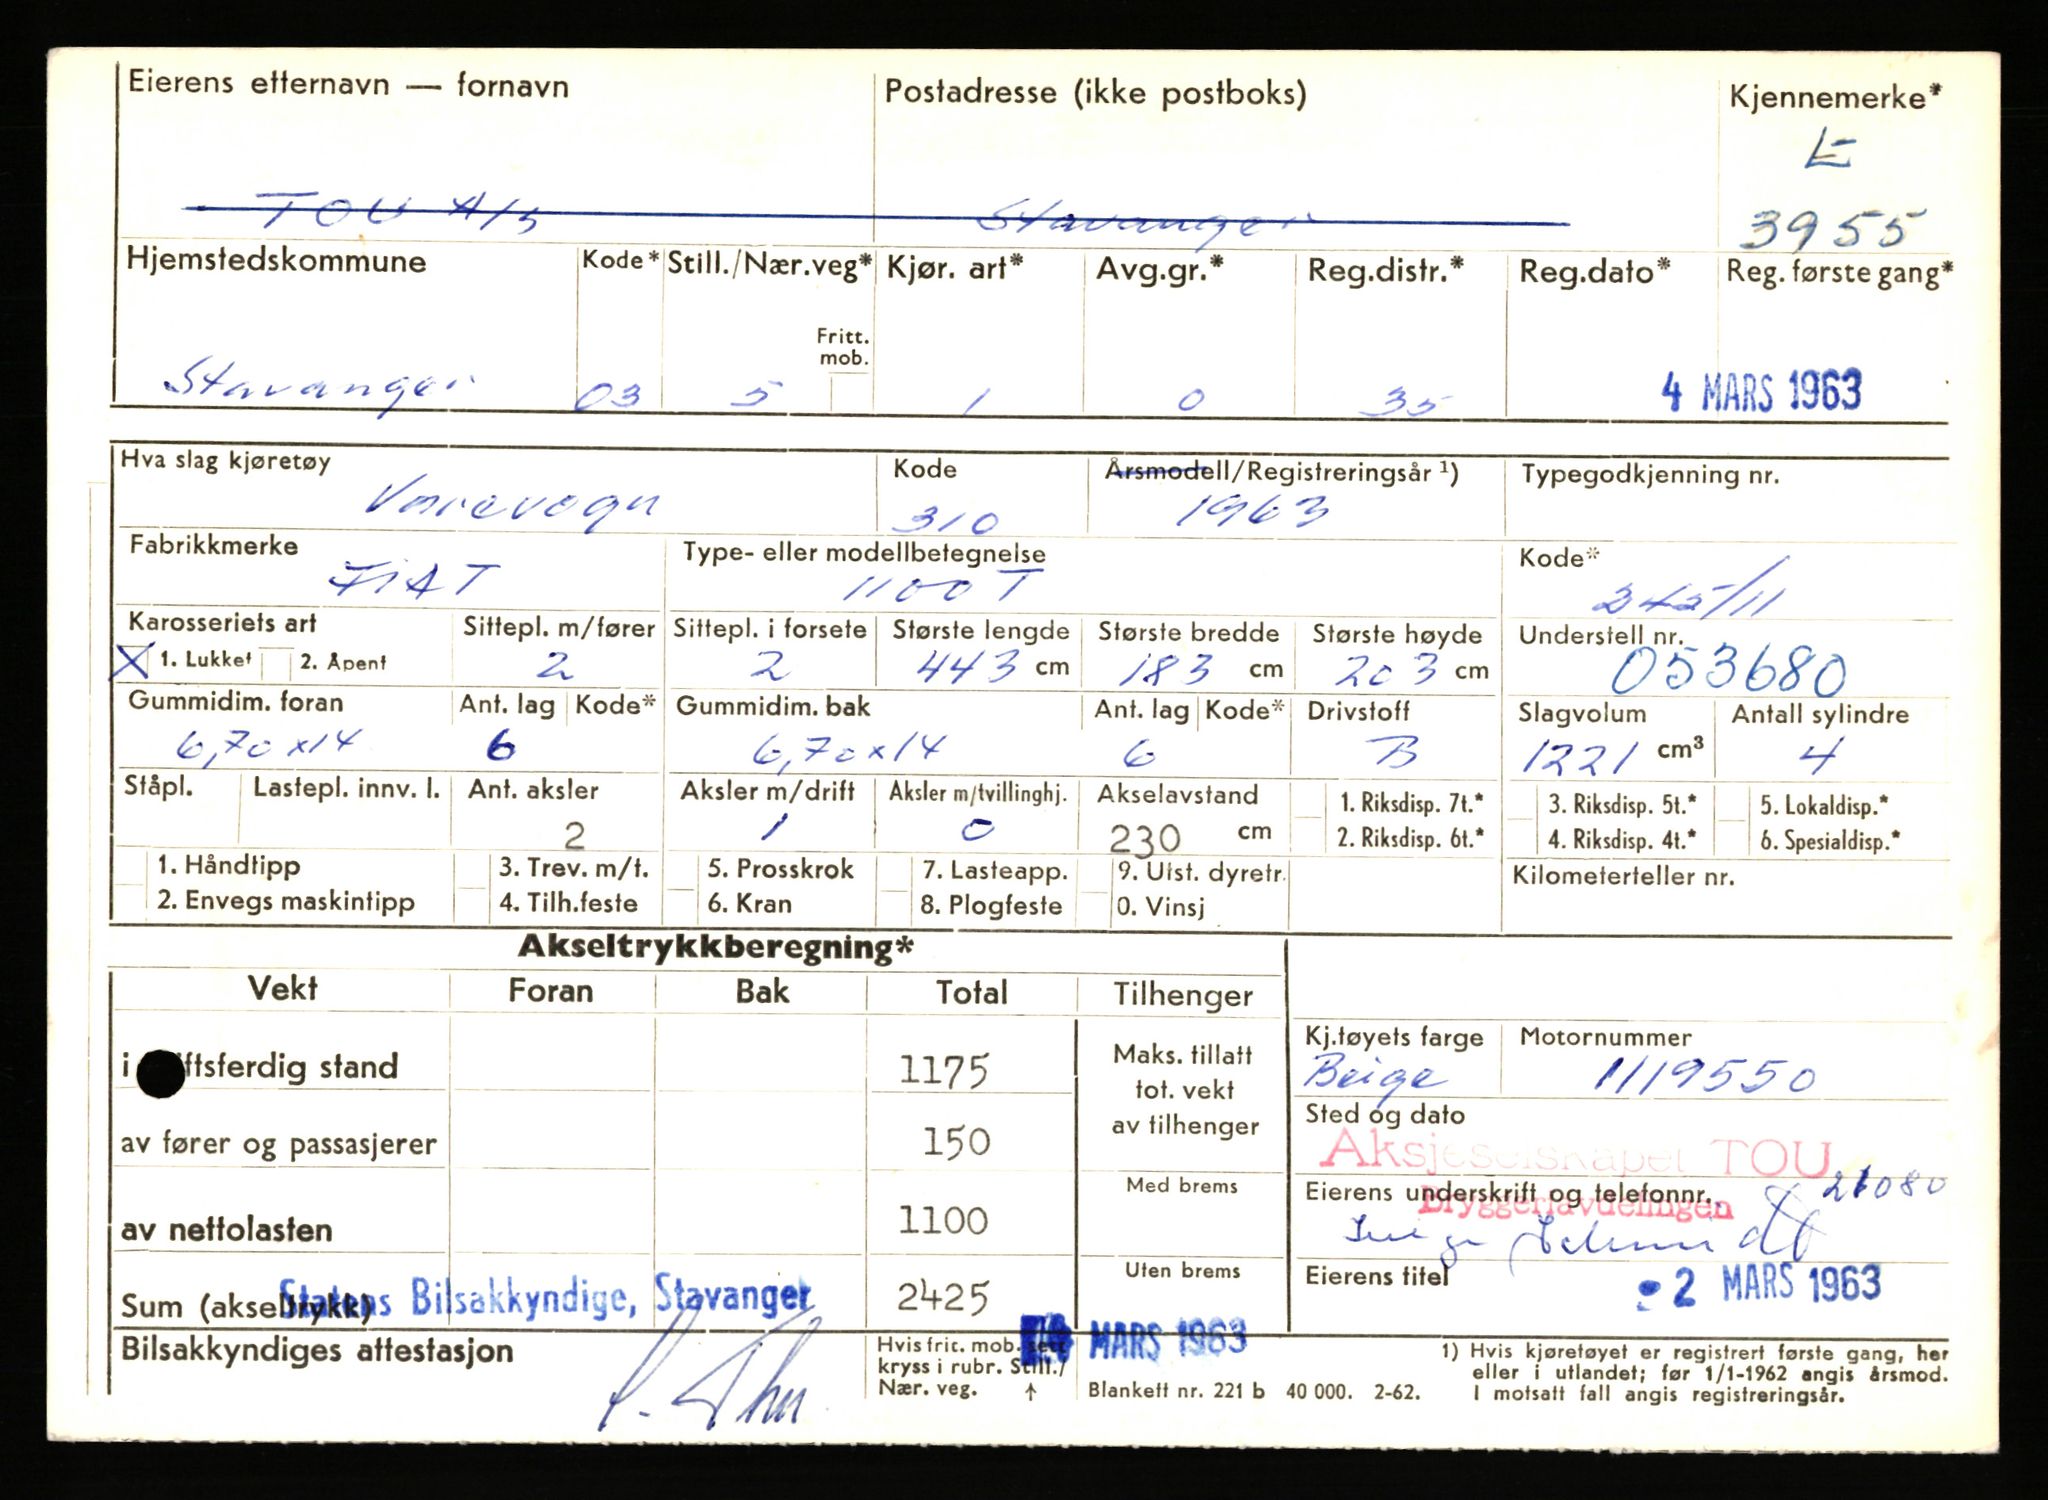 Eierens etternavn — fornavn Postadresse (ikke postboks) Kjennemerke*
L
TOU A/S Stavanger 3955
Hjemstedskommune Kode* Still./Nær.veg* Kjør. art* Avg.gr.* Reg.distr.* Reg.dato* Reg. første gang*
Fritt. mob.
Stavanger 03 5 1 0 35 4 MARS 1963
Hva slag kjøretøy Kode Årsmodell/Registreringsår ¹) Typegodkjenning nr.
Varevogn 310 1963
Fabrikkmerke Type- eller modellbetegnelse Kode*
FIAT 1100 T 245/11
Karosseriets art Sittepl. m/fører Sittepl. i forsete Største lengde Største bredde Største høyde Understell nr.
X 1. Lukket 2. Åpent 2 2 443 cm 183 cm 203 cm 053680
Gummidim. foran Ant. lag Kode* Gummidim. bak Ant. lag Kode* Drivstoff Slagvolum Antall sylindre
6,70 x14 6 6,70 x14 6 B 1221 cm³ 4
Ståpl. Lastepl. innv. l. Ant. aksler Aksler m/drift Aksler m/tvillinghj. Akselavstand 1. Riksdisp. 7t.* 3. Riksdisp. 5t.* 5. Lokaldisp.*
2 1 0 230 cm 2. Riksdisp. 6t.* 4. Riksdisp. 4t.* 6. Spesialdisp.*
1. Håndtipp 3. Trev. m/t. 5. Prosskrok 7. Lasteapp. 9. Utst. dyretr. Kilometerteller nr.
2. Envegs maskintipp 4. Tilh.feste 6. Kran 8. Plogfeste 0. Vinsj
Akseltrykkberegning*
Vekt Foran Bak Total Tilhenger
Kj.tøyets farge Motornummer
i ftsferdig stand 1175 Maks. tillatt tot. vekt av tilhenger Beige 1119550
Sted og dato
av fører og passasjerer 150 Aksjeselskapet TOU
Med brems Eierens underskrift og telefonnr. 21080
Bryggeriavdelingen
av nettolasten 1100
Uten brems Eierens titel 2 MARS 1963
Sum (akseltrykk) Statens Bilsakkyndige, Stavanger 2425
Bilsakkyndiges attestasjon Hvis fric. mob. sett MARS 1963
kryss i rubr. Still./
Nær. veg. ↑ Blankett nr. 221 b 40 000. 2-62.
1) Hvis kjøretøyet er registrert første gang, her
eller i utlandet; før 1/1-1962 angis årsmod.
I motsatt fall angis registreringsår.